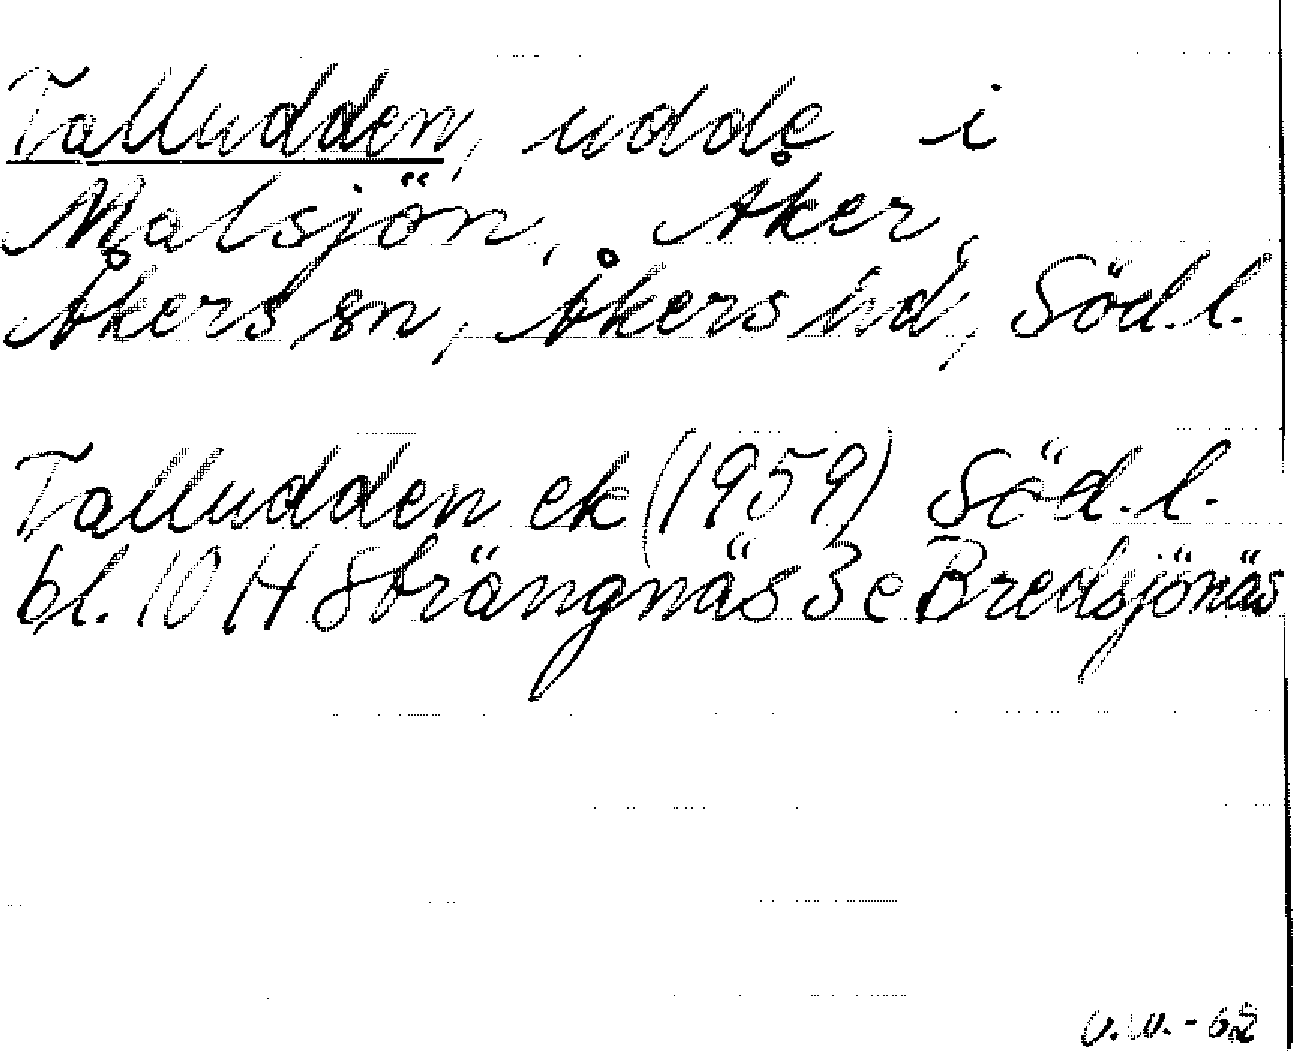 Talludden, udde i
Malsjön, Åker,
Åkers sn, Åkers hd, Söd. l.
Talludden ek (1959) Söd. l.
bl. 10 H Strängnäs 3 e Bredsjönäs
U.W. - 62